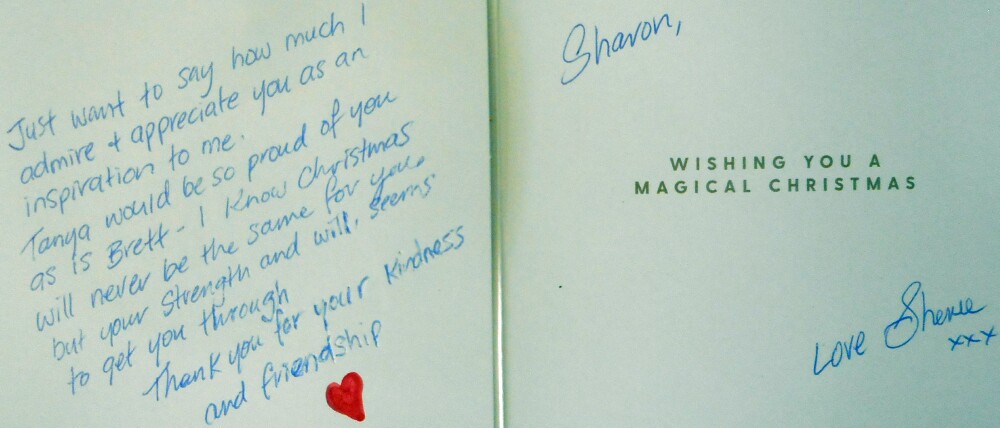 Just want to say how much I
admire + appreciate you as an
inspiration to me.
Tanya would be so proud of you
as is Brett - I know Christmas
will never be the same for you.
but your strength and will, seems
to get you through
Thank you for your kindness
and friendship
Sharon,
WISHING YOU A
MAGICAL CHRISTMAS
Love Sherie
xxx